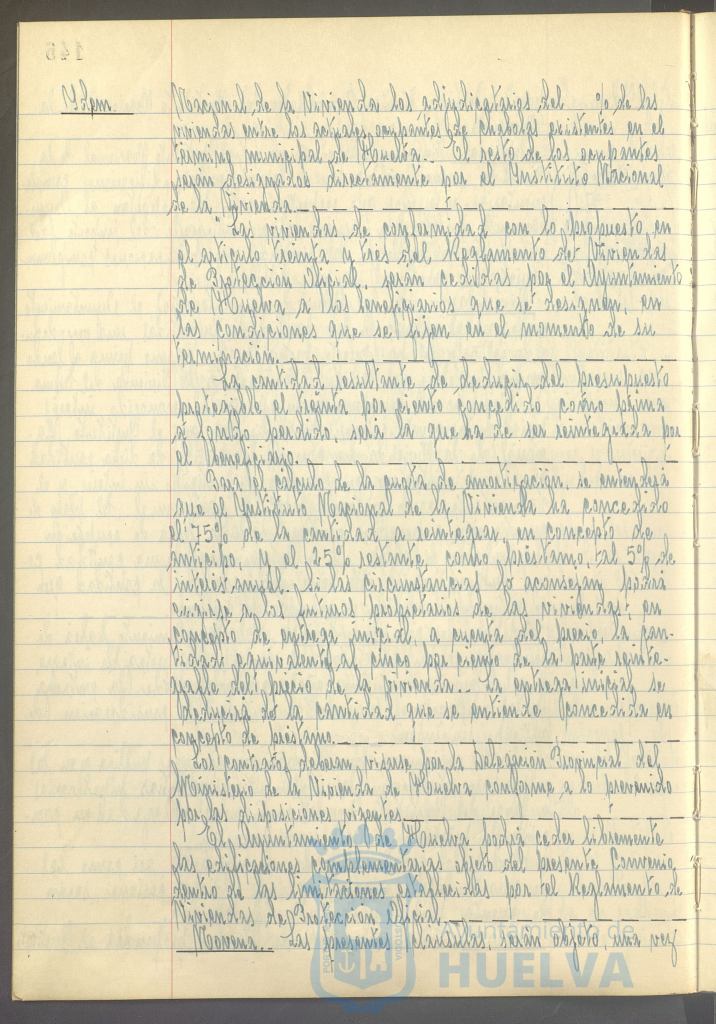 146
Idem.
Nacional de la Vivienda los adjudicatarios del % de las
viviendas entre los actuales ocupantes de chabolas existentes en el
término municipal de Huelva.. El resto de los ocupantes
serán designados directamente por el Instituto Nacional
de la Vivienda.
Las viviendas, de conformidad con lo propuesto en
el artículo treinta y tres del Reglamento de Viviendas
de Protección Oficial, serán cedidas por el Ayuntamiento
de Huelva a los beneficiarios que se designen, en
las condiciones que se fijen en el momento de su
terminación.
La cantidad resultante de deducir del presupuesto
protegible el treinta por ciento concedido como prima
a fondo perdido, será la que ha de ser reintegrada por
el beneficiario.
Para el cálculo de la cuota de amortización, se entenderá
que el Instituto Nacional de la Vivienda ha concedido
el 75% de la cantidad a reintegrar en concepto de
anticipo, y el 25% restante como préstamo, al 5% de
interés anual. Si las circunstancias lo aconsejan podrá
exigirse a los futuros propietarios de las viviendas, en
concepto de entrega inicial, a cuenta del precio, la can-
tidad equivalente al cinco por ciento de la parte reinte-
grable del precio de la vivienda.. La entrega inicial se
deducirá de la cantidad que se entiende concedida en
concepto de préstamo.
Los contratos deberán visarse por la Delegación Provincial del
Ministerio de la Vivienda de Huelva conforme a lo prevenido
por las disposiciones vigentes.
El Ayuntamiento de Huelva podrá ceder libremente
las edificaciones complementarias objeto del presente Convenio
dentro de las limitaciones establecidas por el Reglamento de
Viviendas de Protección Oficial.
Novena.. Las presentes cláusulas, serán objeto una vez
Ayuntamiento de
HUELVA